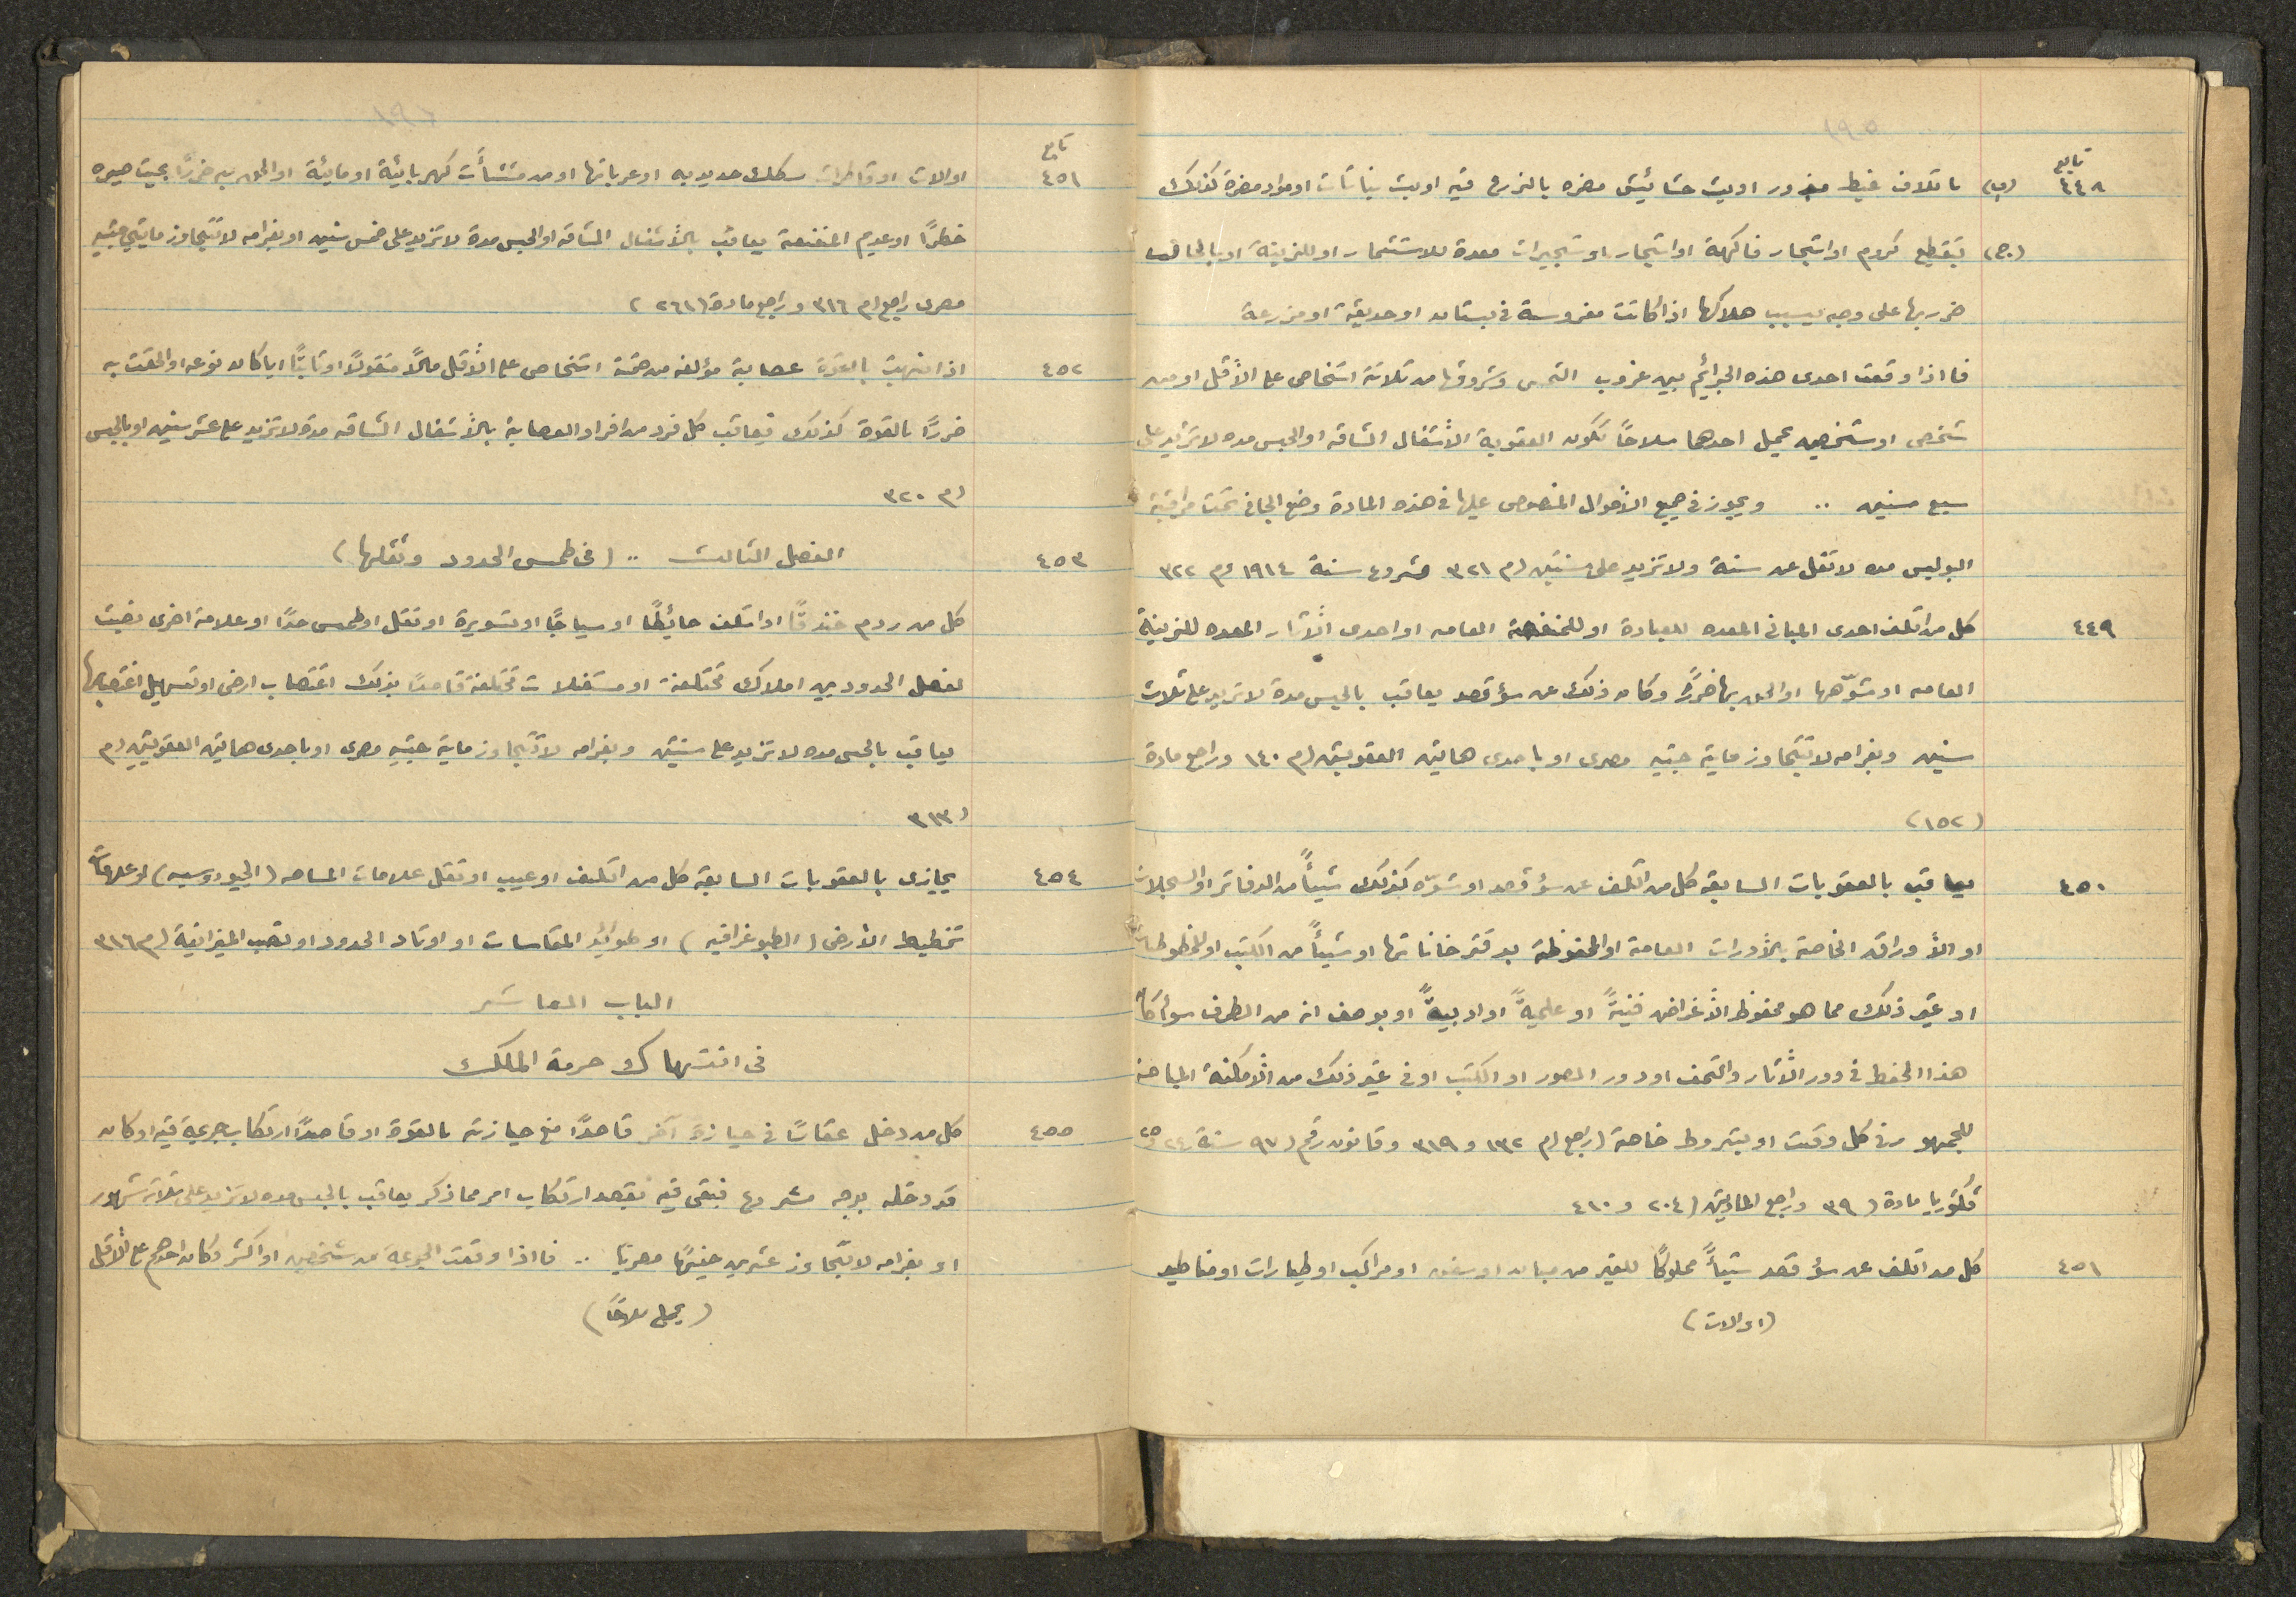 ١٩٥
تابع
٤٤٨ (ب) باتلاف غيط مبذور او بث حشائيش مضره بالزرع فيه او بث نباتات او مواد مضرة كذلك
(ج) بتقطيع كروم او اشجار فاكهة او اشجار او شجيرات معدة للاستثمار او للزينة او بالحاق
ضرر بها على وجه يسبب هلاكها اذا كانت مغروسة في بستان او حديقة او مزرعة
فاذا وقعت احدى هذه الجرائم بين غروب الشمس وشروقها من ثلاثة اشخاص على الأقل او من
شخص او شخصين يحمل احدهما سلاحاً تكون العقوبة الأشغال الشاقه او الحبس مده لا تزيد على
سبع سنين .. ويجوز في جميع الأحوال المنصوص عليها في هذه المادة وضع الجاني تحت مراقبة
البوليس مده لا تقل عن سنة ولا تزيد على سنتين (م ٣٢١ مشروع سنة ١٩١٤ وم ٣٢٢
٤٤٩ كل من اتلف احدى المباني المعده للعبادة او للمنفعة العامه او احدى الآثار المعده للزينة
العامه او شوّهها او الحق بها ضرراً وكان ذلك عن سؤ قصد يعاقب بالحبس مدة لا تزيد على ثلاث
سنين وبغرامه لا تتجاوز ماية جنيه مصرى او باحدى هاتين العقوبتين (م ١٤٠ وراجع مادة
(١٥٢)
٤٥٠ يعاقب بالعقوبات السابقه كل من اتلف عن سؤ قصد او شوّه كذلك شيئاً من الدفاتر او السجلات
او الأوراق الخاصة بالأدارات العامة او المحفوظة بدفترخاناتها او شيئاً من الكتب او المخطوطات
او غير ذلك مما هو محفوظ لأغراض فنيةً او علميةً او ادبيةً او بوصف انه من الطرف سواء كان
هذا الحفظ في دور الآثار والتحف او دور الصور او الكتب او في غير ذلك من الأمكنة المباحة
للجمهور في كل وقت او بشروط خاصة (راجع م ١٣٢ و ٣١٩ وقانون رقم (٩٧ سنة ٢٤ و ٢٥
فكتوريا مادة (٣٩ وراجع المادتين (٢٠٤ و ٤١٠
٤٥١ كل من اتلف عن سؤ قصد شيئاً مملوكاً للغير من مبان او سفن او مراكب او طيارات او مناطيد
(او الات)
١٩٦
تابع
٤٥١ او الات او قاطرات سكك حديديه او عرباتها او من منشآت كهربائية او مائية او الحق به ضرراً بحيث صيره
خطراً او عديم المنفعة يعاقب بالأشغال الشاقه او الحبس مدة لا تزيد على خمس سنين او بغرامه لا تتجاوز مايتي جنيه
مصرى راجع م ٣١٦ وراجع مادة (٢٦١)
٤٥٢ اذا نهبت بالقوة عصابة مؤلفه من خمسة اشخاص على الأقل مالاً منقولاً او ثابتاً ايا كان نوعه او الحقت به
ضرراً بالقوة كذلك فيعاقب كل فرد من افراد العصابة بالأشغال الشاقه مدة لا تزيد على عشر سنين او بالحبس
(م ٣٢٠
٤٥٣ الفصل الثالث .. (في طمس الحدود ونقلها)
كل من ردم خندقاً او اتلف حائطاً او سياجاً او تسويرة او نقل او طمس حداً او علامة اخرى نصبت
لفصل الحدود بين املاك مختلفة او مستغلات مختلفة قاصداً بذلك اغتصاب ارض او تسهيل اغتصابها
يعاقب بالحبس مده لا تزيد على سنتين وبغرامه لا تتجاوز ماية جنيه مصرى او باحدى هاتين العقوبتين (م
(٣١٣
٤٥٤ يجازى بالعقوبات السابقه كل من اتلف او عيب او نقل علامات المساحه (الجيودوسيه) او علامات
تخطيط الأرض (الطبوغرافيه) او طوائد المقاسات او اوتاد الحدود او نصب الميزانية (م ٣١٦
الباب العاشر
في انتهاك حرمة الملك
٤٥٥ كل من دخل عقاراً في حيازة آخر قاصداً منع حيازته بالقوة او قاصداً ارتكاب جريمة فيه او كان
قد دخله بوجه مشروع فبقى فيه بقصد ارتكاب امر مما ذكر يعاقب بالحبس مده لا تزيد على ثلاثة شهور
او بغرامه لا تتجاوز عشرين جنيهاً مصرياً .. فاذا وقعت الجريمة من شخصين او اكثر وكان احدهم على الأقل
(يحمل سلاحاً)